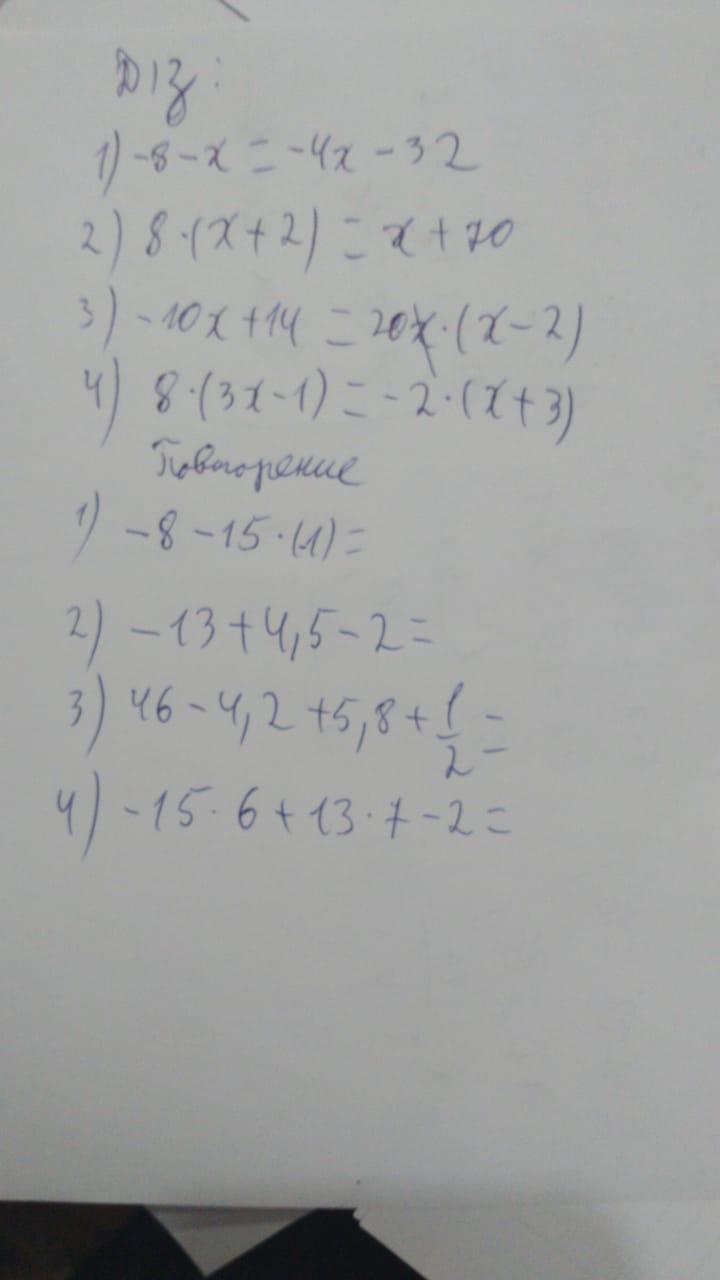 Д/З:
1) -8-x = -4x - 32
2) 8·(x+2) = x+70
3) -10x+14 = 20·(x-2)
4) 8·(3x-1) = -2·(x+3)
Повторение
1) -8-15·(-1)=
2) -13+4,5-2=
3) 46-4,2+5,8+1/2=
4) -15·6+13·7-2=